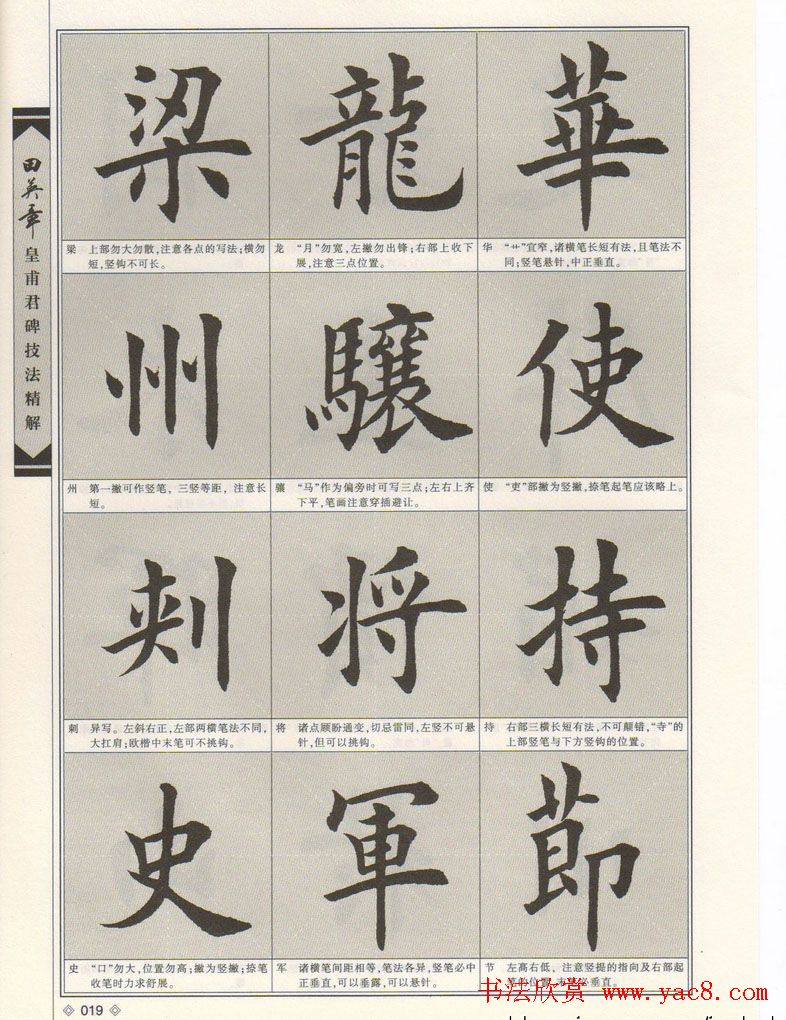 田英章
皇甫君碑技法精解
梁 龍 華
梁 上部勿大勿散,注意各点的写法;横勿
短,竖钩不可长。
龙 “月”勿宽,左撇勿出锋;右部上收下
展,注意三点位置。
华 “艹”宜窄,诸横笔长短有法,且笔法不
同;竖笔悬针,中正垂直。
州 驤 使
州 第一撇可作竖笔,三竖等距,注意长
短。
骧 “马”作为偏旁时可写三点;左右上齐
下平,笔画注意穿插避让。
使 “吏”部撇为竖撇,捺笔起笔应该略上。
刾 将 持
刺 异写。左斜右正,左部两横笔法不同,
大扛肩;欧楷中末笔可不挑钩。
将 诸点顾盼通变,切忌雷同,左竖不可悬
针,但可以挑钩。
持 右部三横长短有法,不可颠错,“寺”的
上部竖笔与下方竖钩的位置。
史 軍 節
史 “口”勿大,位置勿高;撇为竖撇;捺笔
收笔时力求舒展。
军 诸横笔间距相等,笔法各异,竖笔必中
正垂直,可以垂露,可以悬针。
节 左高右低,注意竖提的指向及右部起
必垂直。
书法欣赏 www.yac8.com
019